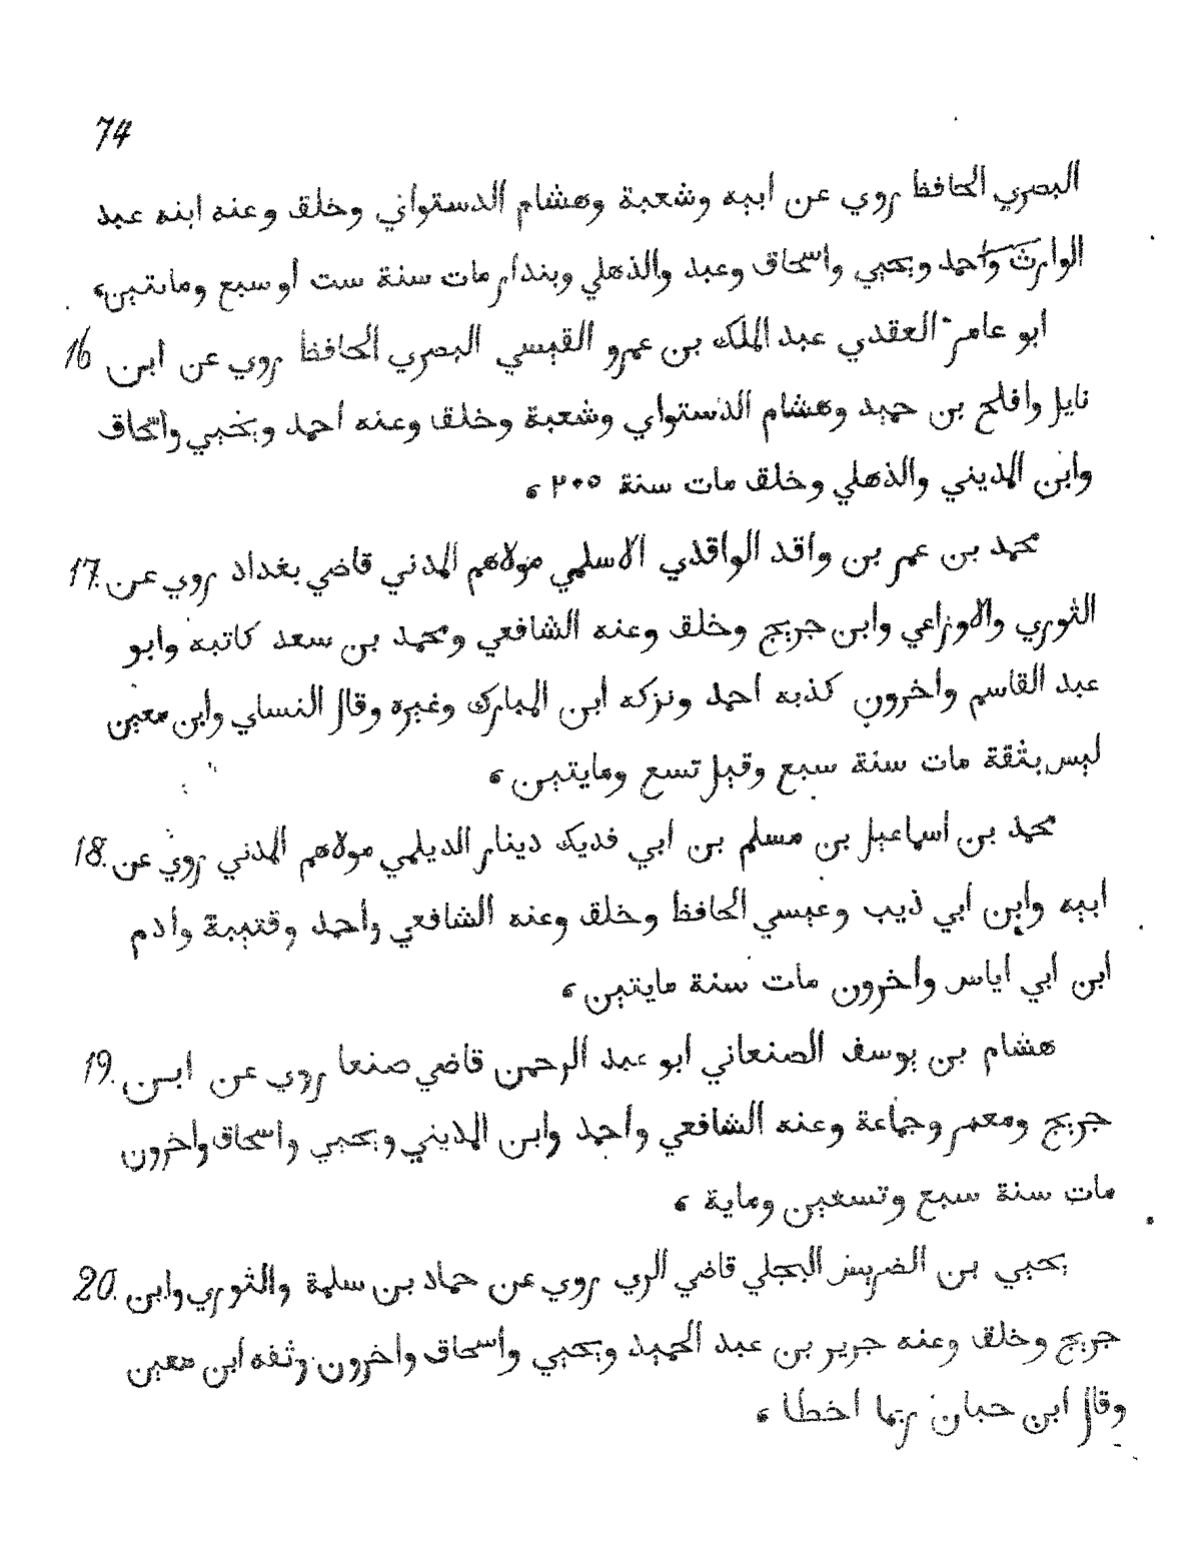 74
البصري الحافظ روي عن ابيه وشعبة وهشام الدستواني وخلق وعنه ابنه عبد
الوارث واحمد ويحيي واسحاق وعبد والذهلي وبندار مات سنة ست او سبع ومايتين،
16 ابو عامر العقدي عبد الملك بن عمرو القيسي البصري الحافظ روي عن ابن
نايل وافلح بن حميد وهشام الدستواي وشعبة وخلق وعنه احمد ويحيي واسحاق
وابن المديني والذهلي وخلق مات سنة ٢٠٥ ،
17. محمد بن عمر بن واقد الواقدي الاسلمي مولاهم المدني قاضي بغداد روي عن
الثوري والاوزاعي وابن جريج وخلق وعنه الشافعي ومحمد بن سعد كاتبه وابو
عبد القاسم واخرون كذبه احمد ونزكه ابن المبارك وغيره وقال النساي وابن معين
ليس بثقة مات سنة سبع وقيل تسع ومايتين ،
18. محمد بن اسماعيل بن مسلم بن ابي فديك دينار الديلمي مولاهم المدني روي عن
ابيه وابن ابي ذيب وعيسي الحافظ وخلق وعنه الشافعي واحمد وقتيبة وادم
ابن ابي اياس واخرون مات سنة مايتين ،
19. هشام بن يوسف الصنعاني ابو عبد الرحمن قاضي صنعا روي عن ابن
جريج ومعمر وجماعة وعنه الشافعي واحمد وابن المديني ويحيي واسحاق واخرون
مات سنة سبع وتسعين وماية ،
20. يحيي بن الضريس البجلي قاضي الري روي عن حماد بن سلمة والثوري وابن
جريج وخلق وعنه جرير بن عبد الحميد ويحيي واسحاق واخرون وثقه ابن معين
وقال ابن حبان ربما اخطا ،